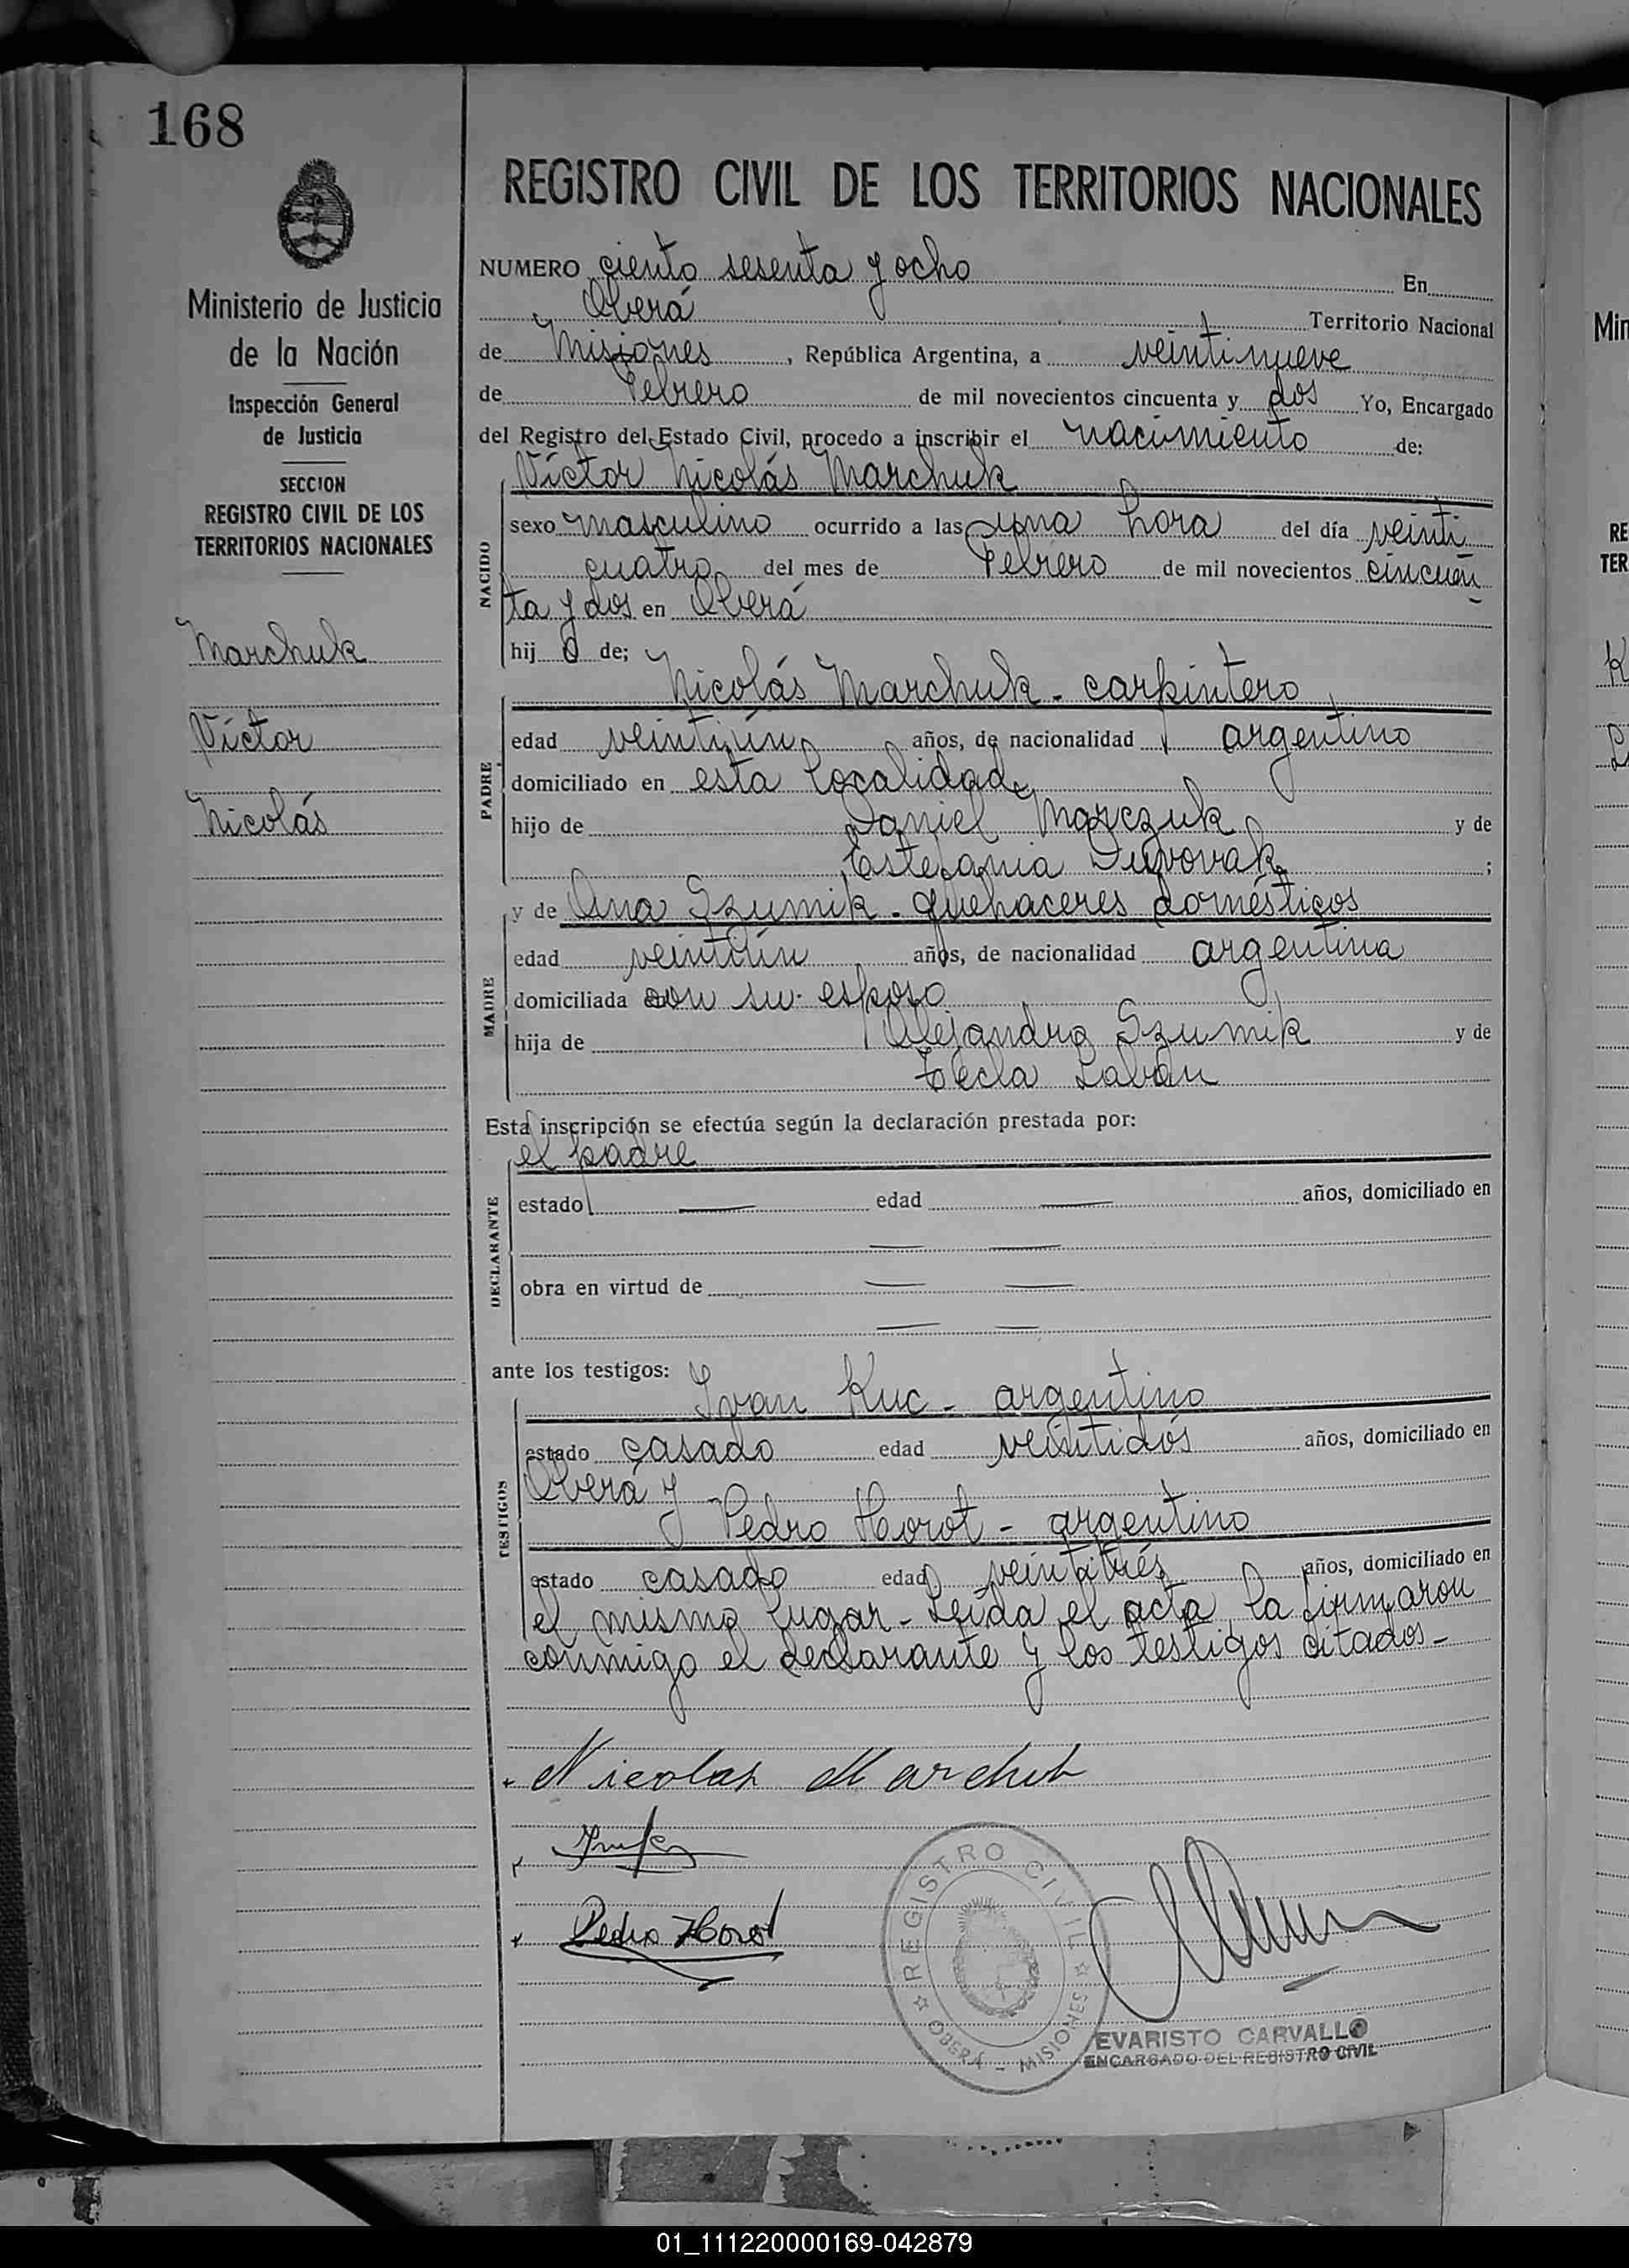 168
Ministerio de Justicia
de la Nación
Inspección General
de Justicia
SECCION
REGISTRO CIVIL DE LOS
TERRITORIOS NACIONALES
Marchuk
Víctor
Nicolás
REGISTRO CIVIL DE LOS TERRITORIOS NACIONALES
NUMERO ciento sesenta y ocho En
Oberá Territorio Nacional
de Misiones, República Argentina, a veintinueve
de Febrero de mil novecientos cincuenta y dos Yo, Encargado
del Registro del Estado Civil, procedo a inscribir el nacimiento de:
Víctor Nicolás Marchuk
NACIDO
sexo masculino ocurrido a las una hora del día veinti
cuatro del mes de Febrero de mil novecientos cincuen
ta y dos en Oberá
hijo de;
Nicolás Marchuk - carpintero
PADRE
edad veintiún años, de nacionalidad argentino
domiciliado en esta localidad
hijo de Daniel Marczuk y de
Estefania ;
y de Ana Szumik - quehaceres domésticos
MADRE
edad veintiún años, de nacionalidad argentina
domiciliada con su esposo
hija de Alejandro Szumik y de
Tecla Laban
Esta inscripción se efectúa según la declaración prestada por:
el padre
DECLARANTE
estado — edad — años, domiciliado en
— —
obra en virtud de — —
— —
ante los testigos: Ivan Kuc - argentino
TESTIGOS
estado casado edad veintidós años, domiciliado en
Oberá y
Pedro Horot - argentino
estado casado edad veintitrés años, domiciliado en
el mismo lugar - Leída el acta, la firmaron
conmigo el declarante y los testigos citados -
Nicolas Marchuk
Pedro Horot
REGISTRO CIVIL
OBERÁ - MISIONES
EVARISTO CARVALLO
ENCARGADO DEL REGISTRO CIVIL
Min
RE
TER
01_111220000169-042879